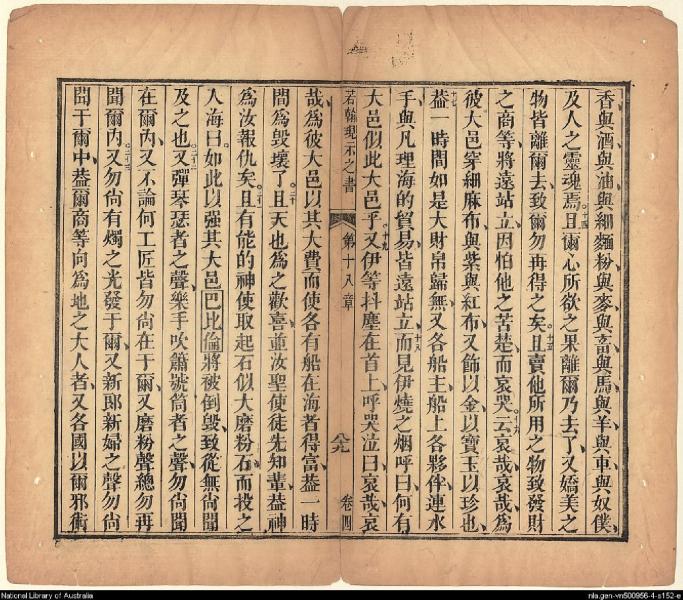 香與酒與油與細麵粉與麥與畜與馬與羊與車與奴僕、
及人之靈魂焉。十四且爾心所欲之果離爾乃去了、又嬌美之
物皆離爾去、致爾勿再得之矣。十五且賣他所用之物致發財
之商等、將遠站立、因怕他之苦楚、而哀哭。十六云、哀哉、哀哉、為
彼大邑穿細麻布、與紫與紅布、又飾以金、以寶玉以珍也、
十七蓋一時間如是大財帛歸無、又各船主、船上各夥伴、連水
手、與凡理海的貿易、皆遠站立、十八而見伊燒之烟呼曰、何有
大邑似此大邑乎。十九又伊等抖塵在首上、呼哭泣曰、哀哉、哀
若翰現示之書 第十八章 八十九 卷四
哉、為彼大邑以其大費而使各有船在海者得富、蓋一時
間為毀壞了。二十且天也為之歡喜、並汝聖使徒先知輩、蓋神
為汝報仇矣。二十一且有能的神使取起石似大磨粉石、而投之
入海曰、如此以強其大邑巴比倫將被倒毀、致從無尚聞
及之也。二十二又彈琴瑟者之聲、樂手吹簫號筒者之聲、勿尚聞
在爾內、又不論何工匠皆勿尚在于爾、又磨粉聲總勿再
聞爾內。二十三又勿尚有燭之光發于爾、又新郎新婦之聲勿尚
聞于爾中、蓋爾商等向為地之大人者、又各國以爾邪術
National Library of Australia
nla.gen-vn500956-4-s152-e